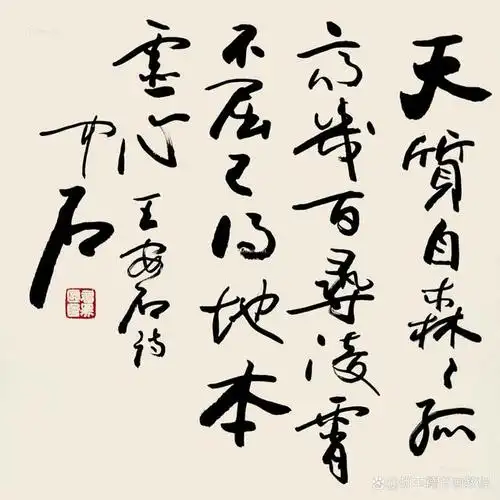 天質自森々孤
高幾百尋凌霄
不屈己得地本
虛心
王安石诗
中石